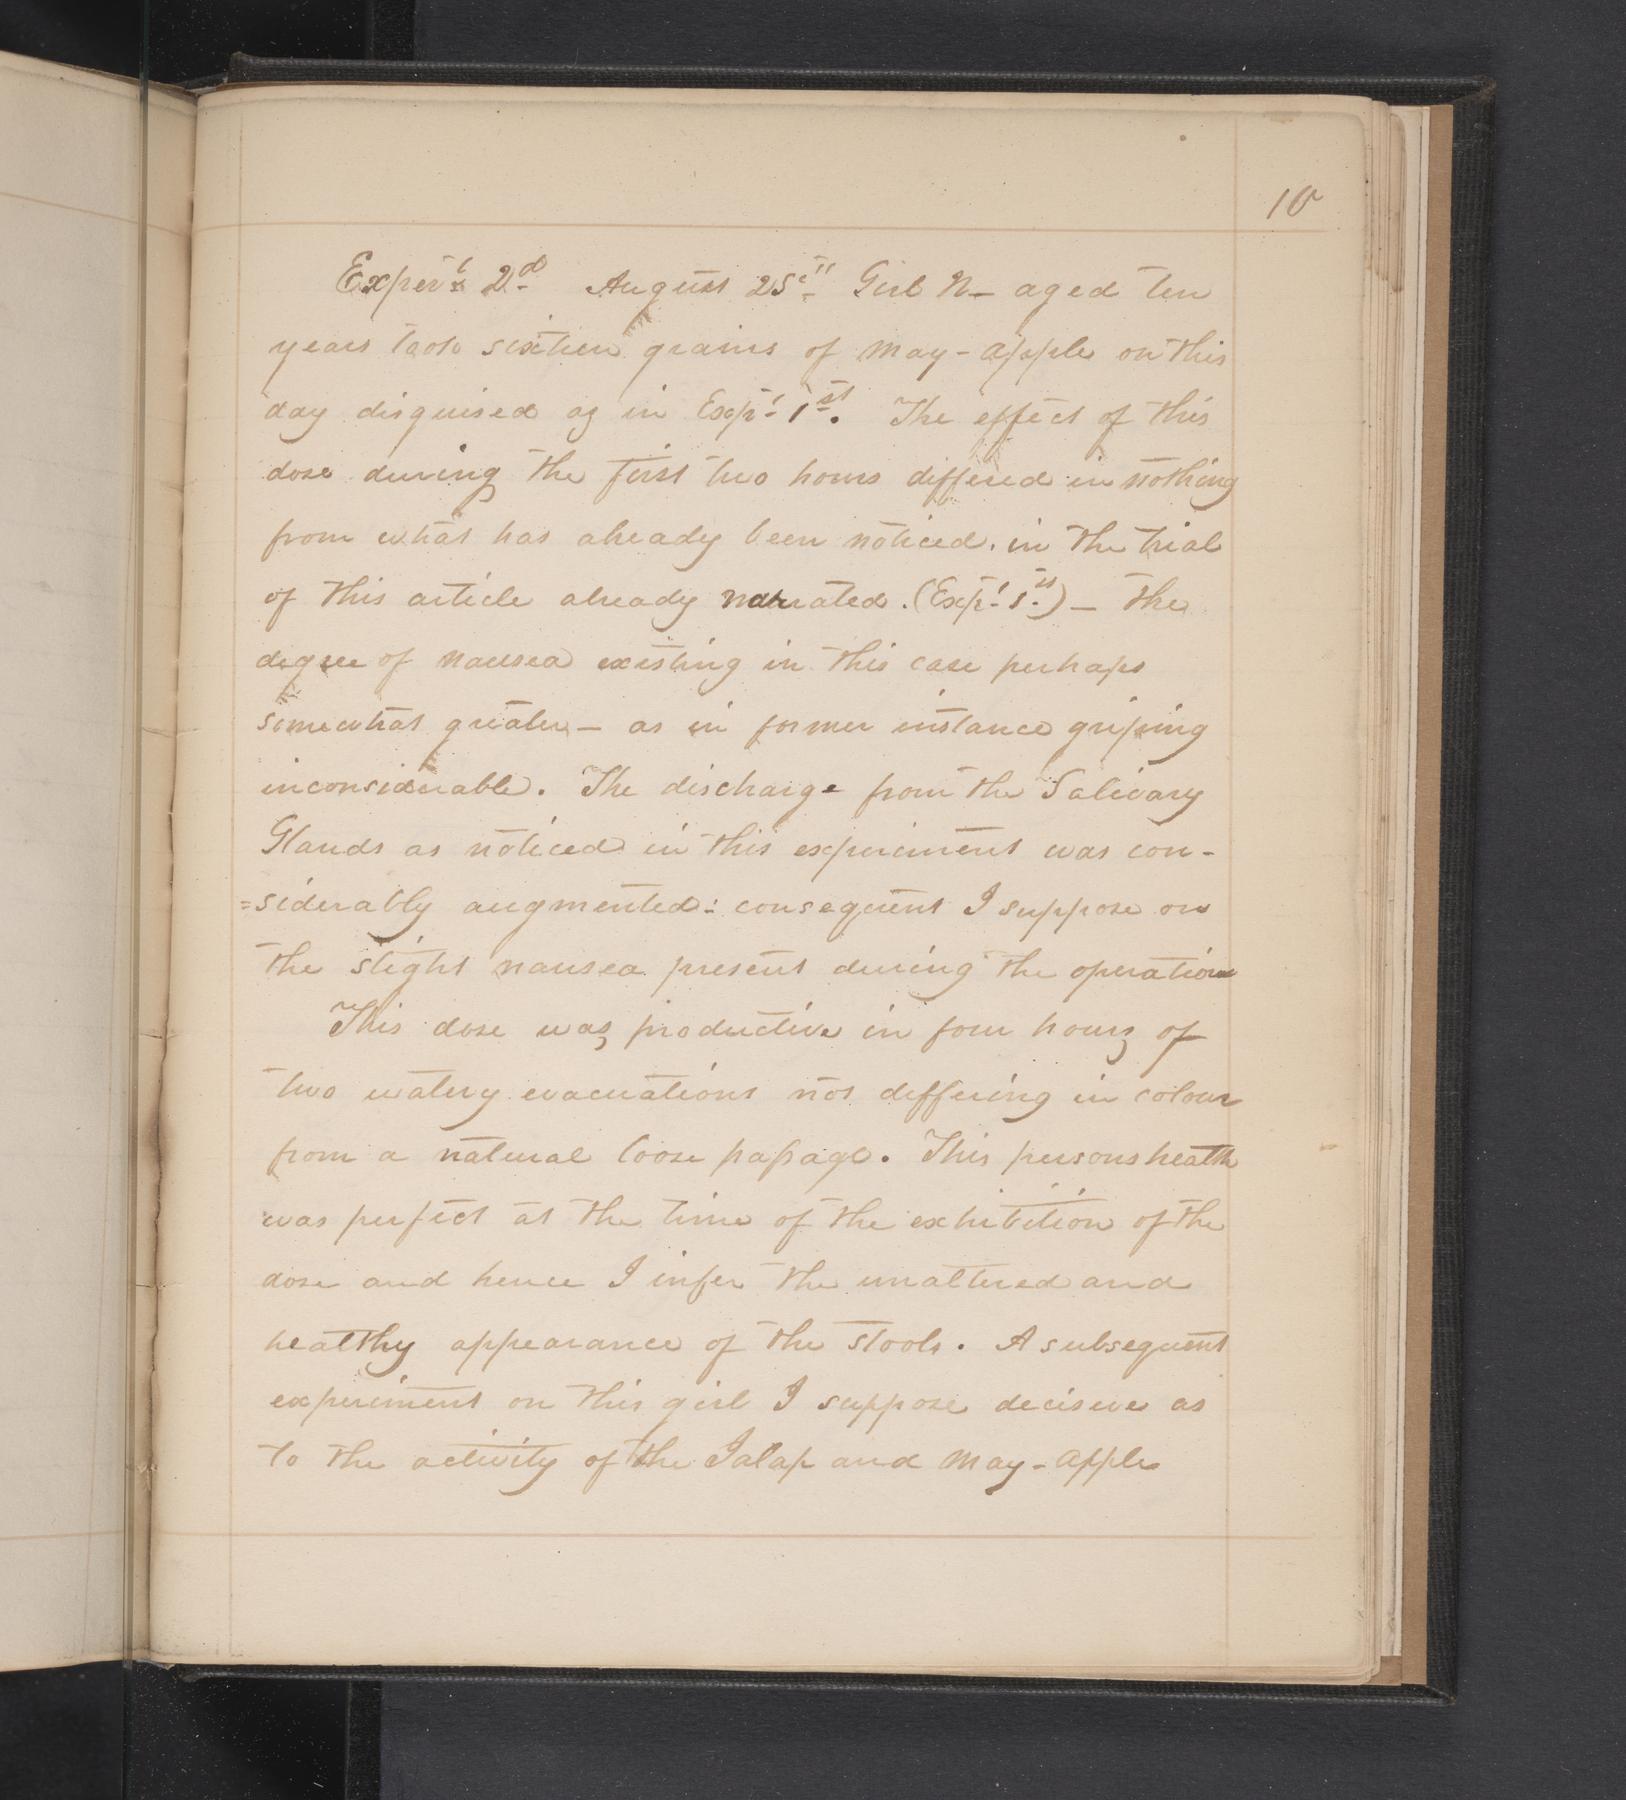 10
Exper.t 2d August 25th Girl N_ aged ten
years took sixteen grains of May-apple on this
day disguised as in Exp.t 1st. The effect of this
dose during the first two hours differed in nothing
from what has already been noticed. in the trial
of this article already narrated. (Exp.t 1.st) _ The
degree of nausea existing in this case perhaps
somewhat greater _ as in former instance griping
inconsiderable. The discharge from the Salivary
Glands as noticed in this experiment was con-
=siderably augmented: consequent I suppose on
the slight nausea present during the operation
This dose was productive in four hours of
two watery evacuations not differing in colour
from a natural loose passage. This persons health
was perfect at the time of the exhibition of the
dose and hence I infer the unaltered and
healthy appearance of the stools. A subsequent
experiment on this girl I suppose decisive as
to the activity of the Jalap and May-apple